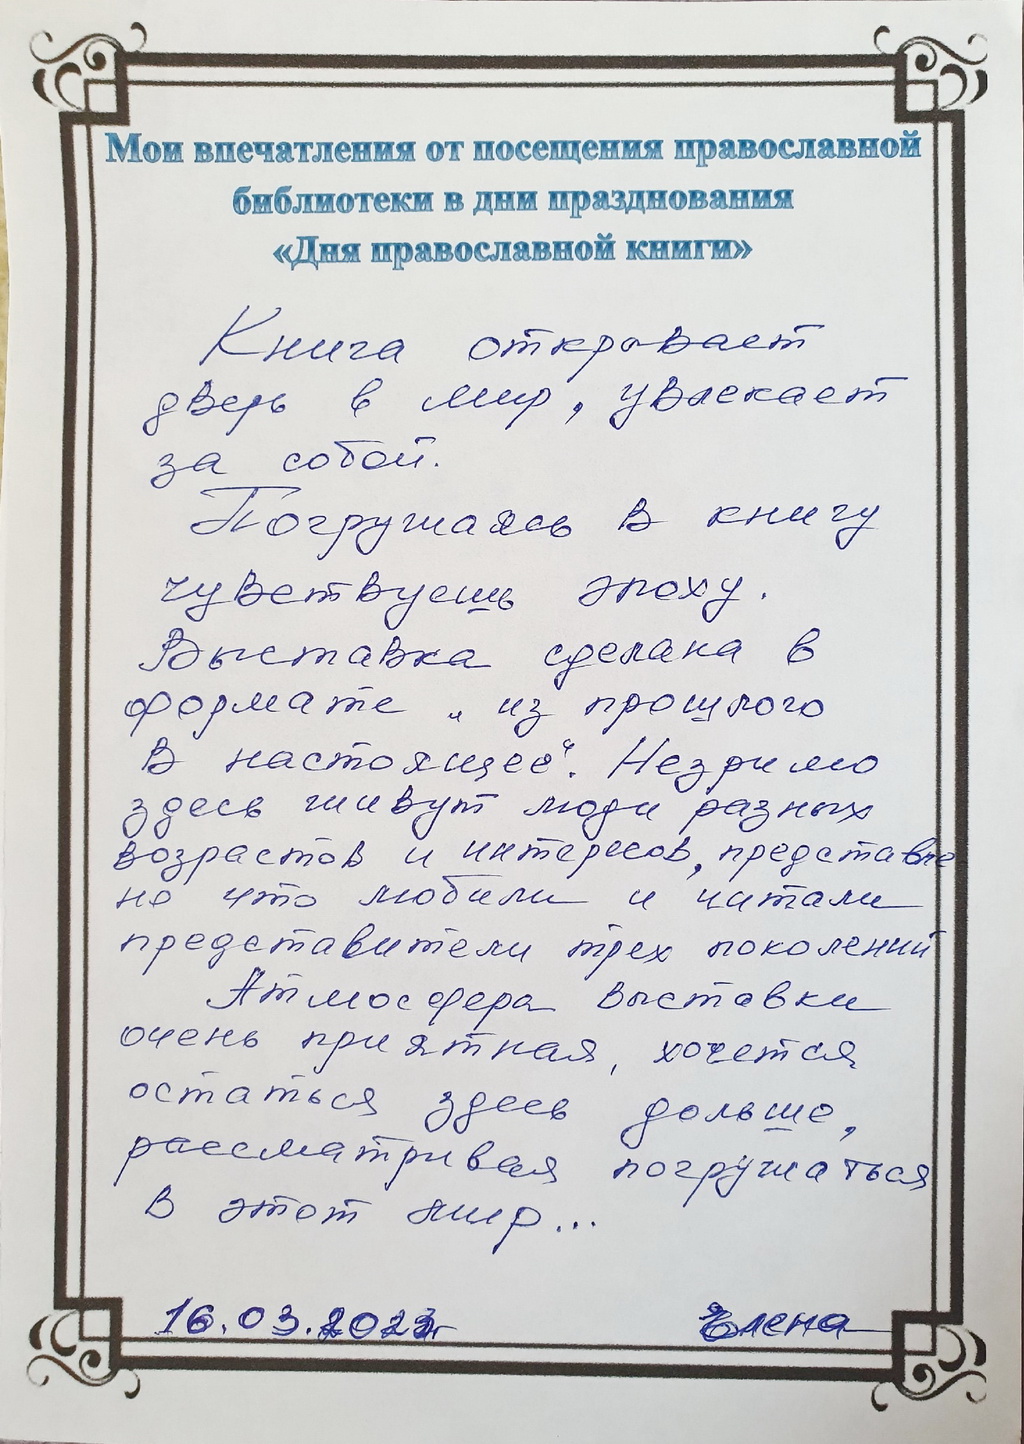 Мои впечатления от посещения православной
библиотеки в дни празднования
«Дня православной книги»
Книга открывает
дверь в мир, увлекает
за собой.
Погружаясь в книгу
чувствуешь эпоху.
Выставка сделана в
формате „из прошлого
в настоящее“. Незримо
здесь живут люди разных
возрастов и интересов, представле
но что любили и читали
представители трех поколений
Атмосфера выставки
очень приятная, хочется
остаться здесь дольше,
рассматривая погружаться
в этот мир...
16.03.2023г Елена